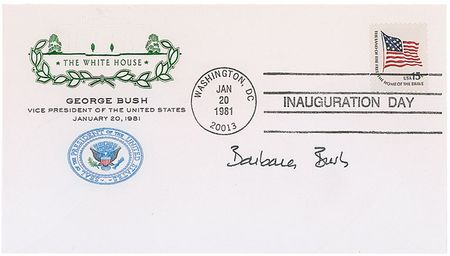 THE WHITE HOUSE
GEORGE BUSH
VICE PRESIDENT OF THE UNITED STATES
JANUARY 20, 1981
SEAL OF THE PRESIDENT OF THE UNITED STATES
WASHINGTON, DC
JAN
20
1981
20013
INAUGURATION DAY
THE LAND OF THE FREE
THE HOME OF THE BRAVE
USA 15c
Barbara Bush